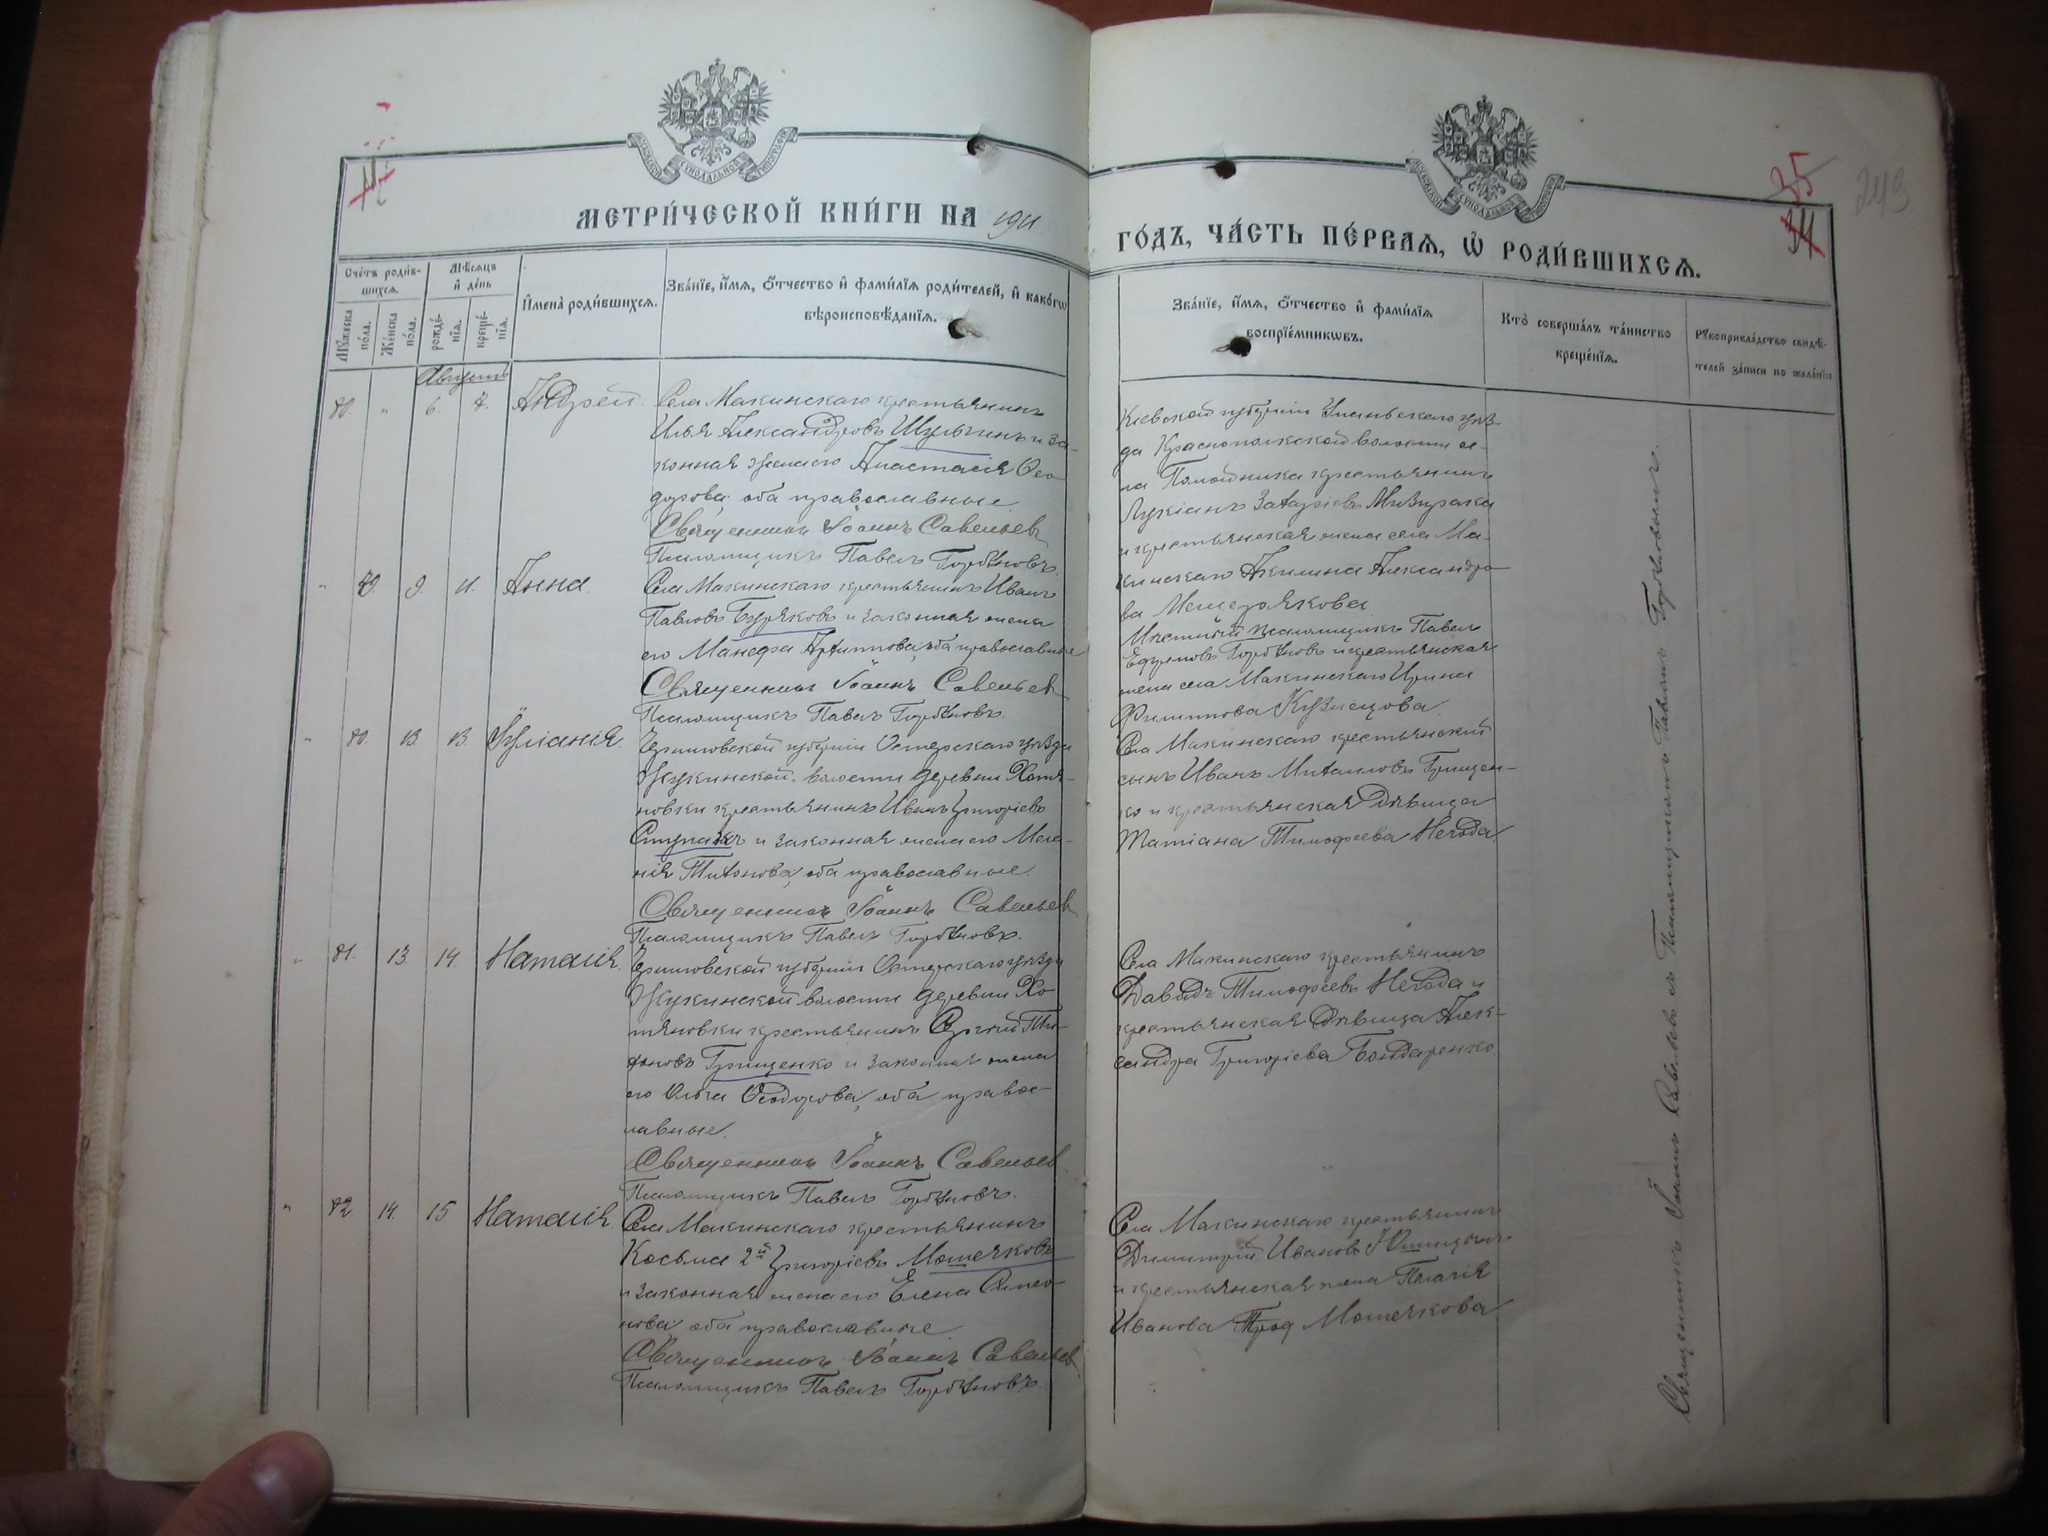 МОСКОВСКОЙ СѴНОДАЛЬНОЙ ТИПОГРАФІИ
МЕТРИ́ЧЕСКОЙ КНИ́ГИ НА 1911
ГО́ДЪ, ЧА́СТЬ ПЕ́РВАѦ, Ѡ҆ РОДИ́ВШИХСѦ.
35
34
249
Сче́тъ роди́вшихсѧ.
Мꙋ́жеска по́ла.
Же́нска по́ла.
Мѣ́сѧцъ и҆ де́нь
рожде́нїѧ.
креще́нїѧ.
И҆мена̀ роди́вшихсѧ.
Зва́нїе, и҆́мѧ, ѻ҆́тчество и҆ фами́лїѧ роди́телей, и҆ како́гѡ
вѣроисповѣ́данїѧ.
Зва́нїе, и҆́мѧ, ѻ҆́тчество и҆ фами́лїѧ
воспрїе́мникѡвъ.
Кто̀ соверша́лъ та́инство
креще́нїѧ.
Рꙋкоприкла́дство свидѣ́-
телей за́писи по жела́нїю
Августъ
80. " 6. 7. Андрей.
Села Макинскаго крестьянинъ
Илья Александровъ Шульгинъ и за-
конная жена его Анастасія Ѳео-
дорова оба православные.
Священникъ Іоаннъ Савельевъ
Псаломщикъ Павелъ Горбуновъ.
Кіевской губерніи Уманьскаго уѣз-
да Краснополкской волости се-
ла крестьянинъ
Лукіанъ Захаріевъ
и крестьянская жена села Ма-
кинскаго Акилина Александро-
ва Мещерякова.
" 79. 9. 11. Анна.
Села Макинскаго крестьянинъ Иванъ
Павловъ Буряковъ и законная жена
его Манефа Архиппова, оба православные
Священникъ Іоаннъ Савельевъ
Псаломщикъ Павелъ Горбуновъ.
Мѣстный псаломщикъ Павелъ
Ефремовъ Горбуновъ и крестьянская
жена села Макинскаго Ирина
Филиппова Кузнецова.
" 80. 13. 13. Іуліанія.
Черниговской губерніи Остерскаго уѣзда
Жукинской волости деревни Хотя-
новки крестьянинъ Иванъ Григоріевъ
Ступакъ и законная жена его Мела-
нія Тихонова, оба православные.
Священникъ Іоаннъ Савельевъ
Псаломщикъ Павелъ Горбуновъ.
Села Макинскаго крестьянскій
сынъ Иванъ Михаиловъ Грищен-
ко и крестьянская дѣвица
Татіана Тимофеева Негода.
" 81. 13. 14. Наталія.
Черниговской губерніи Остерскаго уѣзда
Жукинской волости деревни Хо-
тяновки крестьянинъ Сергій Ти-
хоновъ Грищенко и законная жена
его Ольга Ѳеодорова, оба правос-
лавные.
Священникъ Іоаннъ Савельевъ
Псаломщикъ Павелъ Горбуновъ.
Села Макинскаго крестьянинъ
Давидъ Тимофеевъ Негода и
крестьянская дѣвица Алек-
сандра Григоріева Бондаренко
" 82. 14. 15 Наталія.
Села Макинскаго крестьянинъ
Косьма 2й Григоріевъ
и законная жена его Елена Симео-
нова оба православные.
Священникъ Іоаннъ Савельевъ
Псаломщикъ Павелъ Горбуновъ
Села Макинскаго крестьянинъ
Димитрій Ивановъ
и крестьянская жена Пелагія
Иванова
Священникъ Іоаннъ Савельевъ съ Псаломщикомъ Павломъ Горбуновымъ.